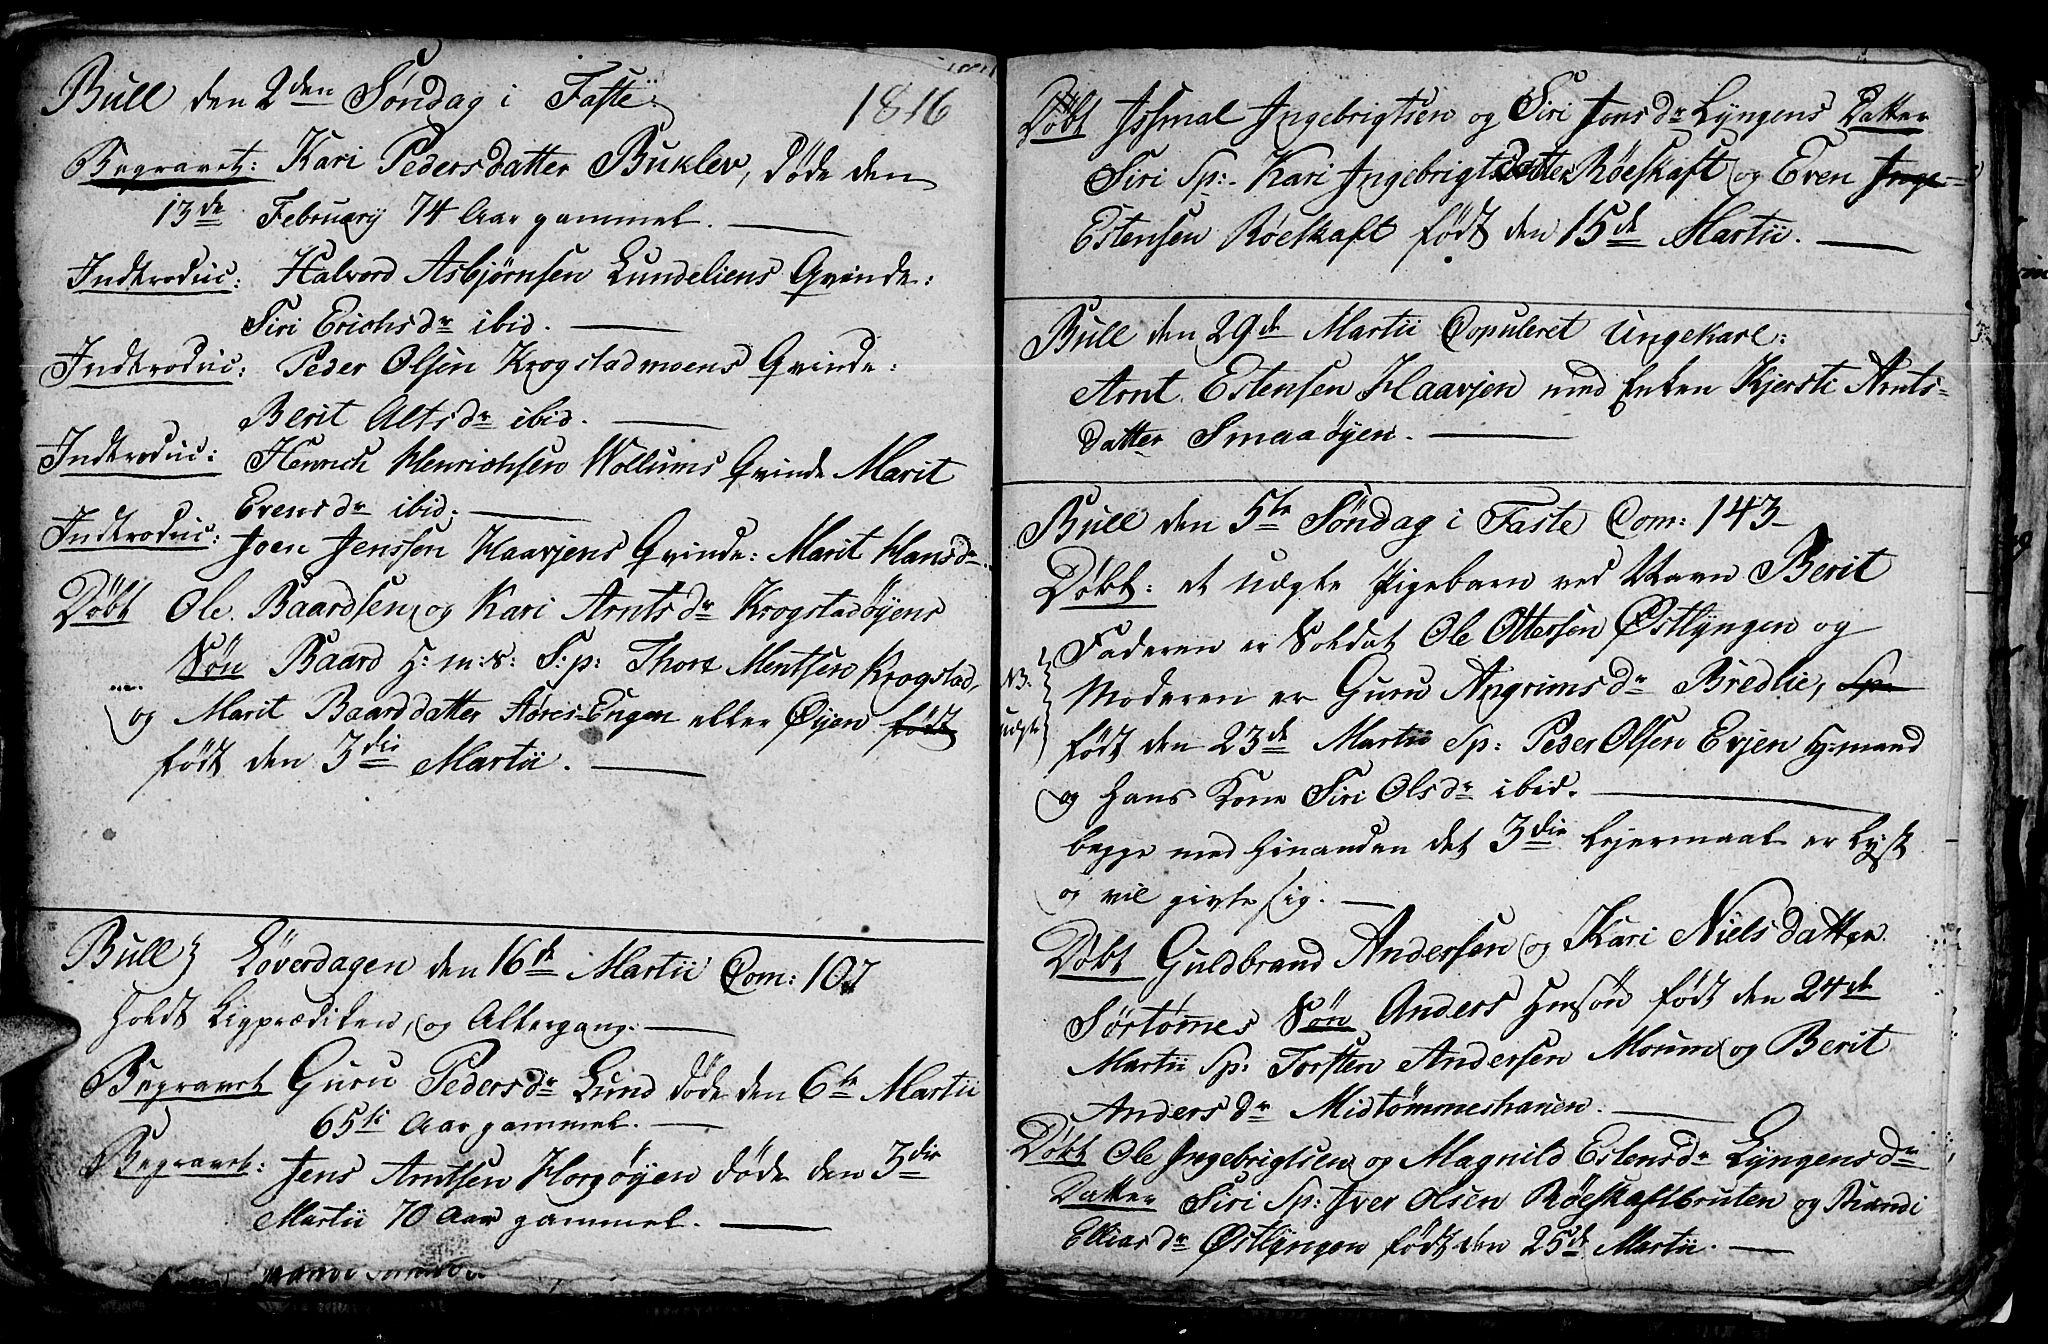 Bull den 2den Søndag i Faste
1816
Begravet: Kari Pedersdatter Buklev, døde den
13de February 74 Aar gammel.
Indtroduc: Halvord Asbjørnsen Lundeliens Qvinde:
Siri Erichsdr ibid.
Indtroduc: Peder Olsen Krogstadmoens Qvinde:
Berit Altsdr ibid.
Indtroduc: Henrich Henrichsen Wollums Qvinde Marit
Evensdr ibid.
Indtroduc: Joen Jenssen Haavjens Qvinde: Marit Hansdr
Døbt Ole Baardsen og Kari Arntsdr Krogstadøyens
Søn Baard H:m:s: S:p: Thore Mentsen Krogstad,
og Marit Baarddatter Støres-Engen eller Øyen født
født den 3die Martii.
Bull Løverdagen den 16de Martii Com: 107
holdt Ligprædiken, og Altergang.
Begravet Guru Pedersdr Lund døde den 6te Martii
65ti Aar gammel.
Begravet: Jens Arntsen Horgøyen døde den 3die
Martii 70 Aar gammel.
Døbt Jssmal Jngebrigtsen og Siri Jonsdr Lyngens Datter
Siri Sp: Kari Jngebrigtsdatter Røeskaft og Even Jnge-
Estensen Røeskaft født den 15de Martii.
Bull den 29de Martii Copuleret Ungekarl:
Arnt Estensen Haavjen med Enken Kjersti Arnts-
datter Smaaøyen.
Bull den 5te Søndag i Faste Com: 143
Døbt: et uægte Pigebarn ved Navn Berit
Faderen er Soldat Ole Ottersen Østlyngen og
NB. Moderen er Guru Angrimsdr Bredlie, Sp:
uægte født den 23de Martii Sp: Peder Olsen Evjen H:mand
og hans Kone Siri Olsdr ibid.
begge med hinanden det 3die Lejermaal er Lyst
og vil givte sig.
Døbt Guldbrand Andersen og Kari Nielsdatter
Sørtømes Søn Anders Hmsøn født den 24de
Martii Sp: Torsten Andersen Moum og Berit
Andersdr Midtømmeshauen.
Døbt Ole Jngebrigtsen og Magnild Estensdr Lyngensdr
Datter Siri Sp: Jver Olsen Røeskaftbruten og Randi
Elliasdr Østlyngen født den 25de Martii.